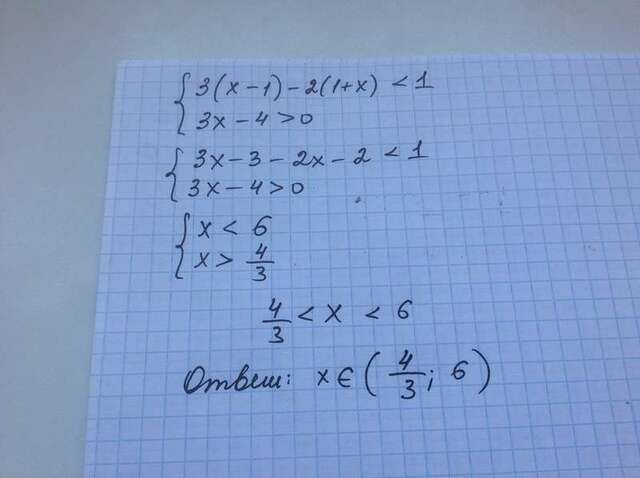 3(x-1)-2(1+x) < 1
3x-4>0
3x-3-2x-2 < 1
3x-4>0
x < 6
x > 4/3
4/3 < x < 6
Ответ: x∈(4/3; 6)